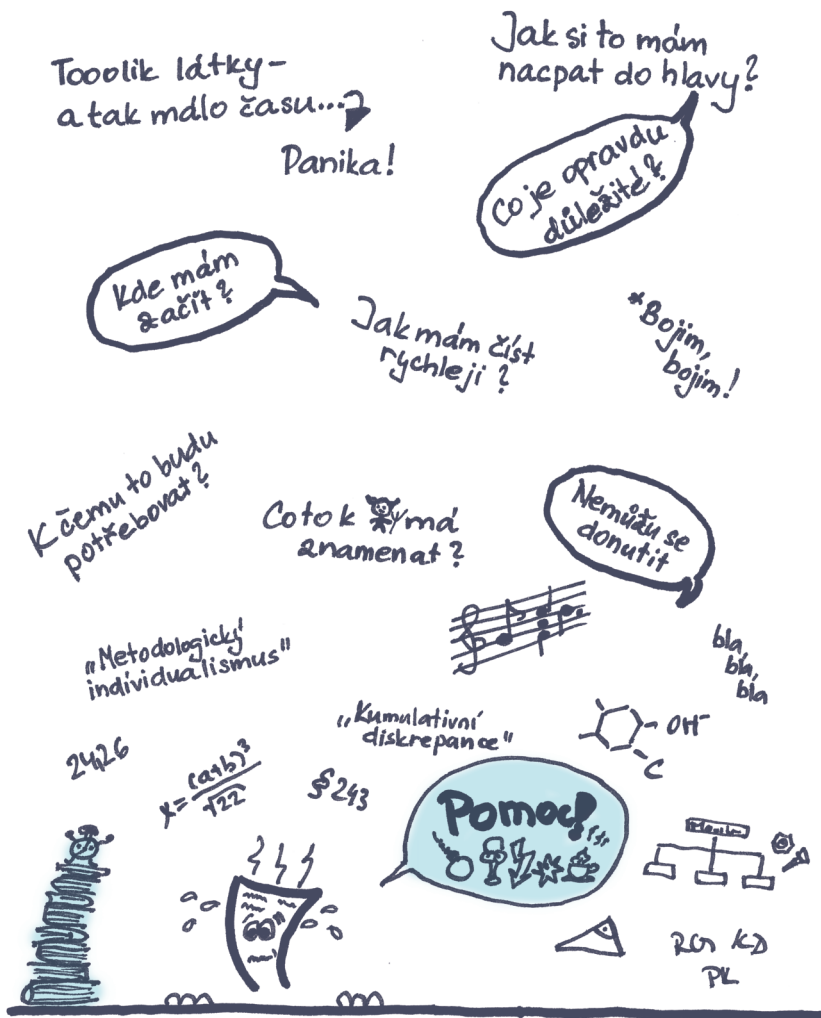 Tooolik látky –
a tak málo času...
Panika!
Jak si to mám
nacpat do hlavy?
Co je opravdu
důležité?
Kde mám
začít?
Jak mám číst
rychleji?
*Bojim,
bojim!
K čemu to budu
potřebovat?
Co to k má
znamenat?
Nemůžu se
donutit
„Metodologický
individualismus"
bla,
bla,
bla
„Kumulativní
diskrepance"
OH⁻
C
24,26
x = (a+b)³
√22
§ 243
Pomoc!